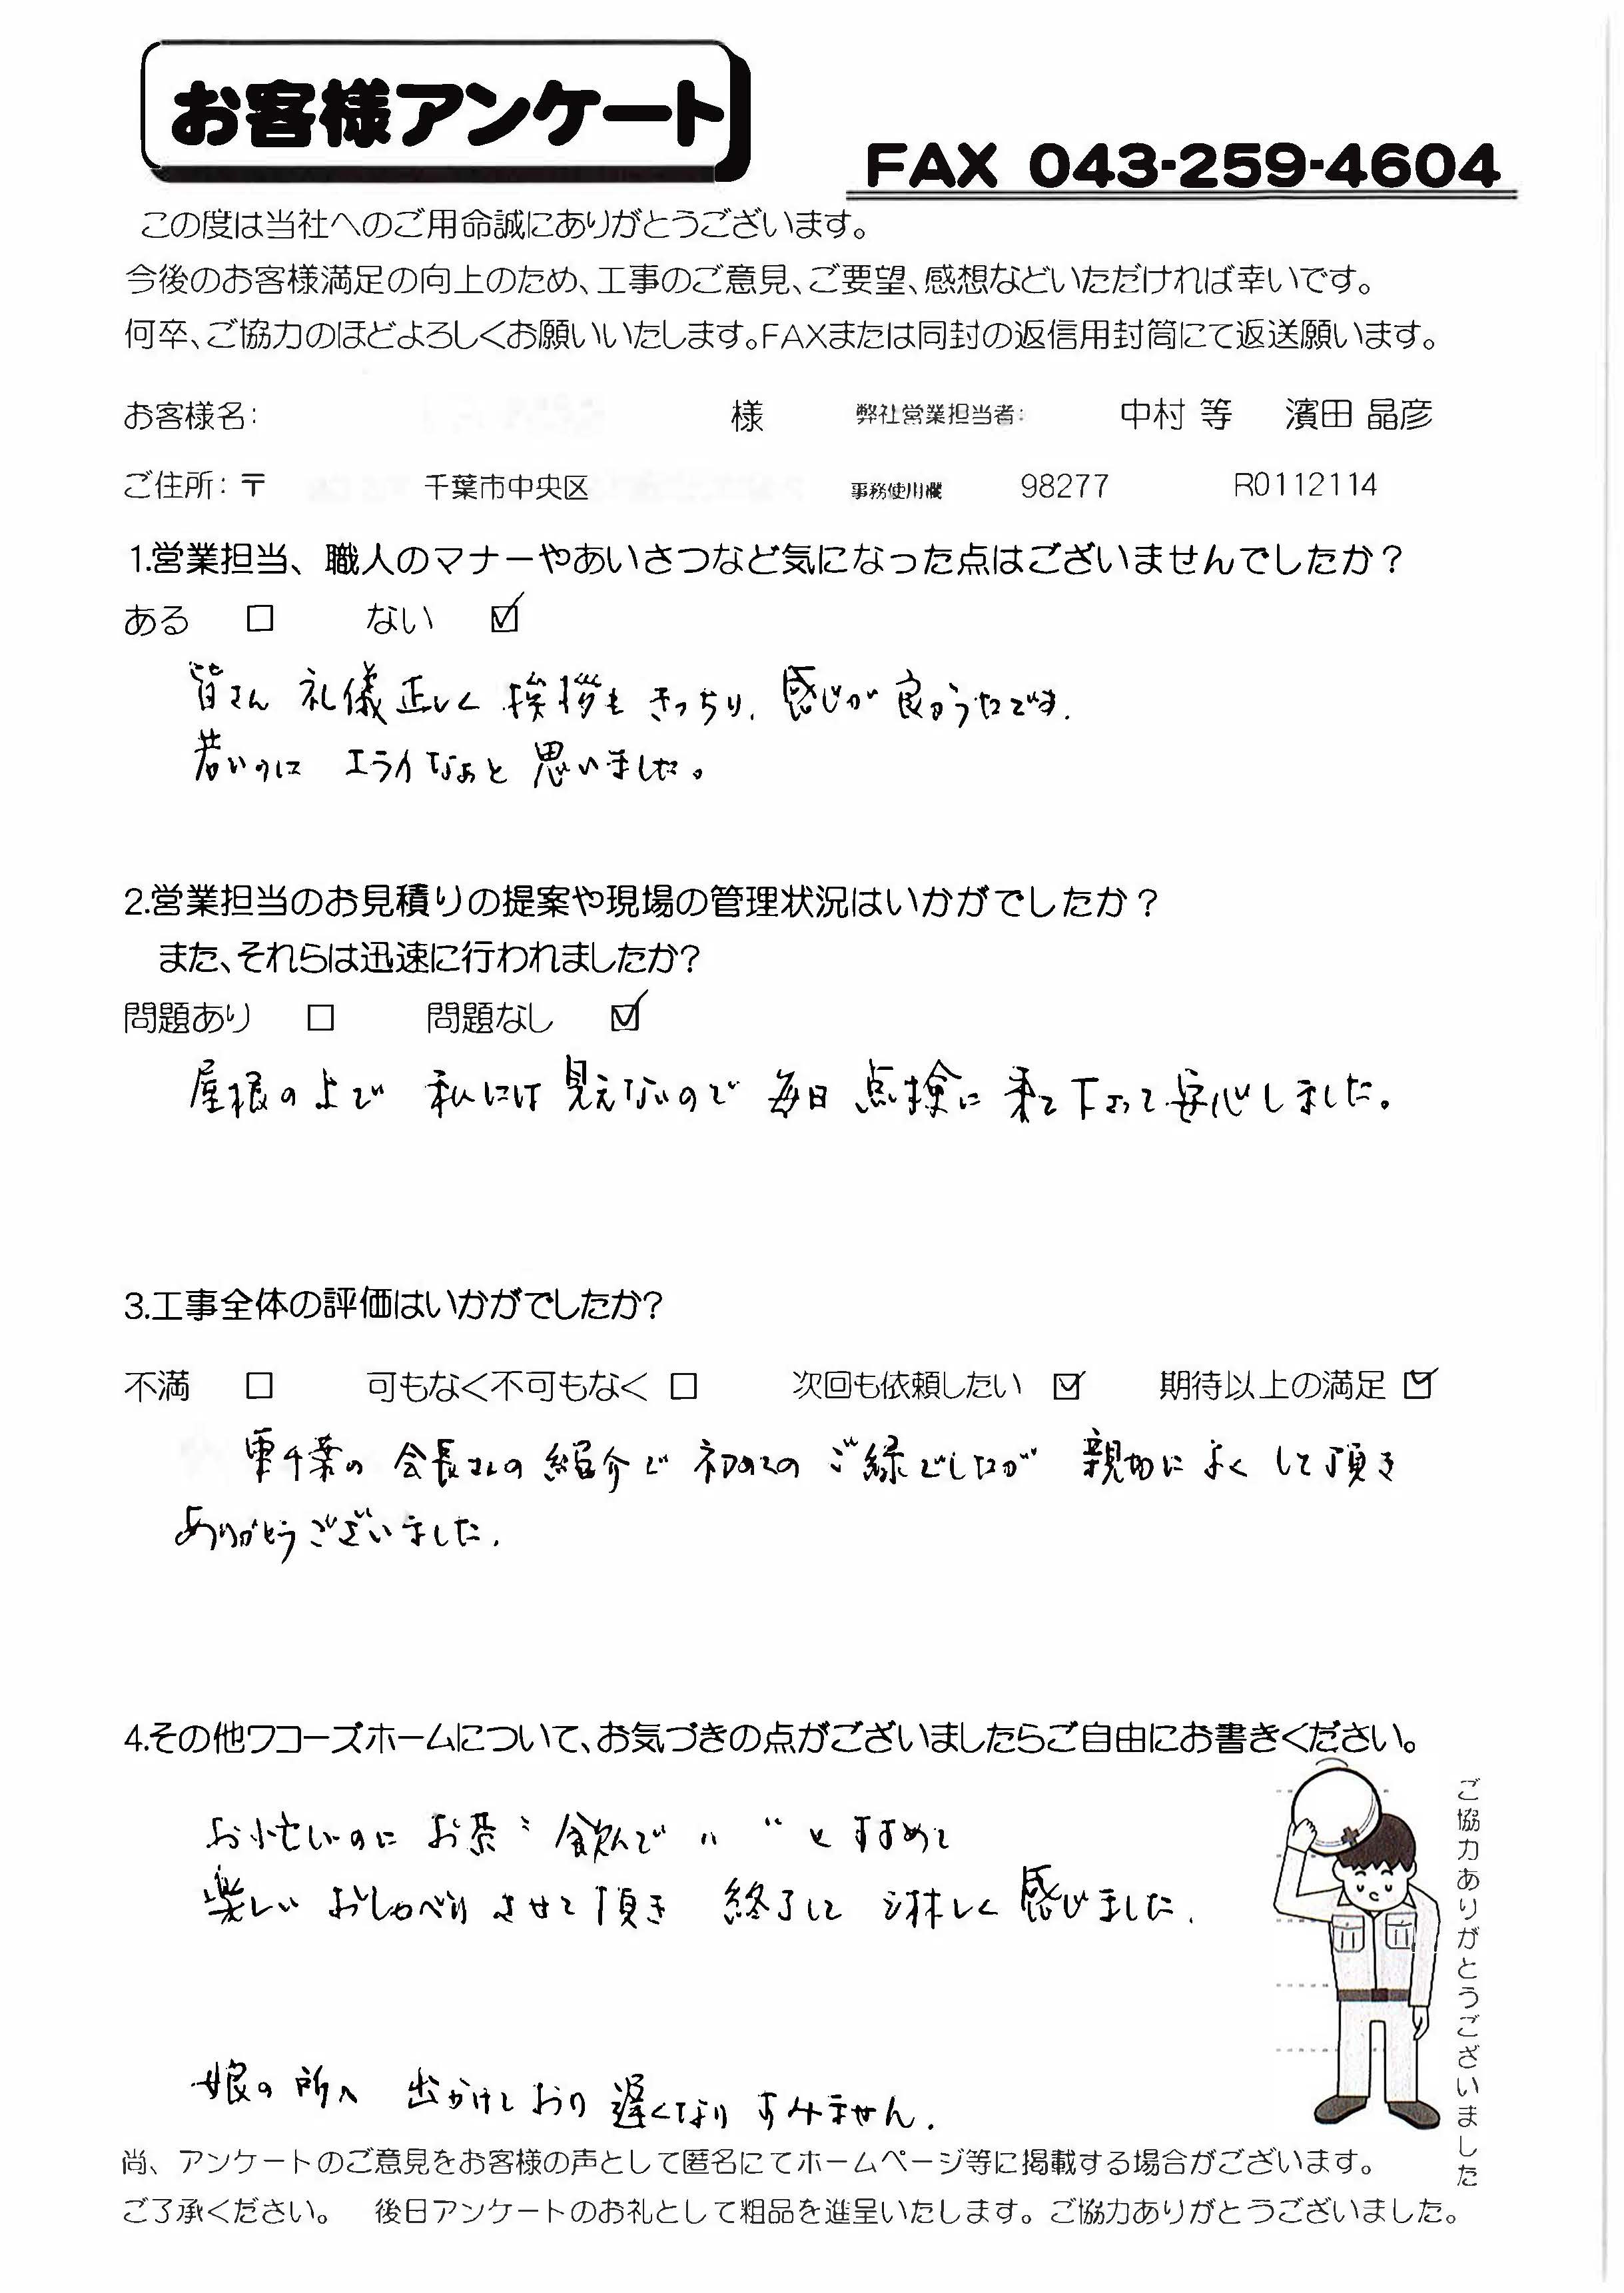 お客様アンケート
FAX 043-259-4604
この度は当社へのご用命誠にありがとうございます。
今後のお客様満足の向上のため、工事のご意見、ご要望、感想などいただければ幸いです。
何卒、ご協力のほどよろしくお願いいたします。FAXまたは同封の返信用封筒にて返送願います。
お客様名: 様 弊社営業担当者: 中村 等 濱田 晶彦
ご住所: 〒 千葉市中央区 事務使用欄 98277 R0112114
1.営業担当、職人のマナーやあいさつなど気になった点はございませんでしたか?
ある □ ない ☑
皆さん 礼儀正しく 挨拶も きっちり、感じが 良かったです。
若いのに エライなぁと 思いました。
2.営業担当のお見積りの提案や現場の管理状況はいかがでしたか?
また、それらは迅速に行われましたか?
問題あり □ 問題なし ☑
屋根の上で 私には 見えないので 毎日 点検に 来て下さって 安心しました。
3.工事全体の評価はいかがでしたか?
不満 □ 可もなく不可もなく □ 次回も依頼したい ☑ 期待以上の満足 ☑
東千葉の 会長さんの 紹介で 初めての ご縁でしたが 親切に よく して頂き
ありがとうございました.
4.その他ワコーズホームについて、お気づきの点がございましたらご自由にお書きください。
お忙しいのに お茶 飲んで とすすめて
楽しい おしゃべり させて頂き 終了して 淋しく 感じました.
娘の所へ 出かけており 遅くなり すみません.
ご協力ありがとうございました
尚、アンケートのご意見をお客様の声として匿名にてホームページ等に掲載する場合がございます。
ご了承ください。 後日アンケートのお礼として粗品を進呈いたします。ご協力ありがとうございました。